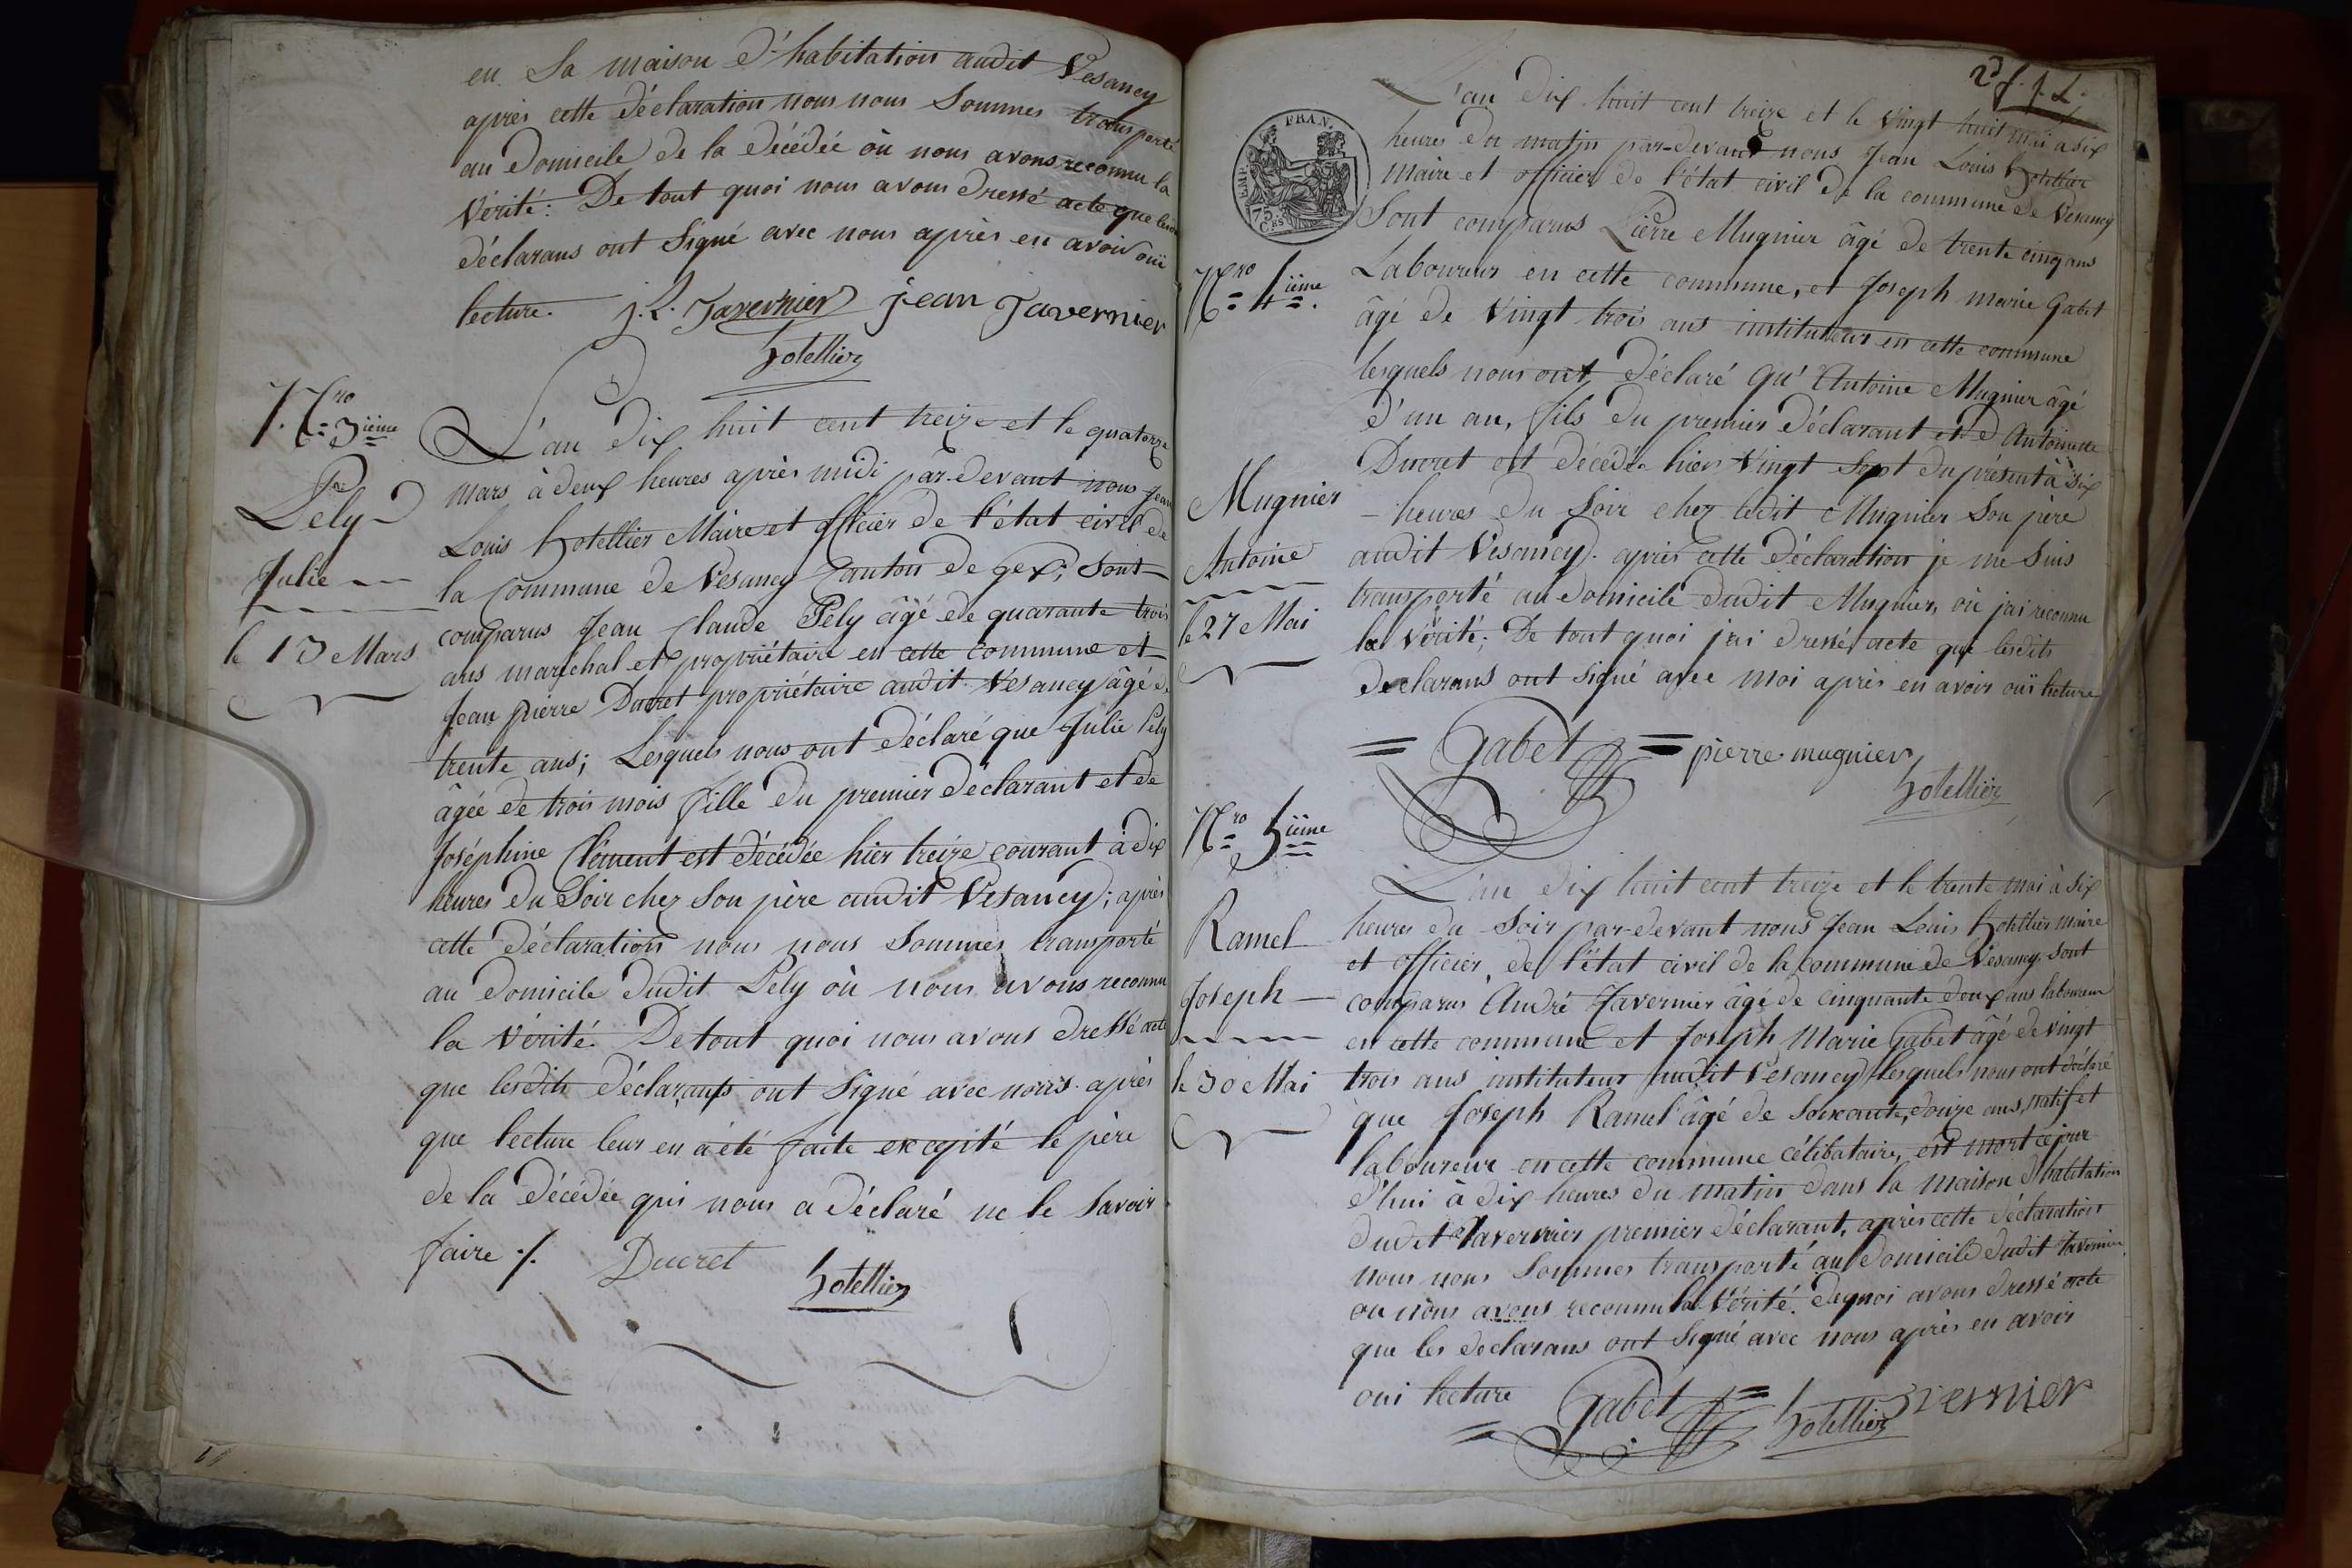 en Sa maison d'habitation audit Vesancy
après cette déclaration nous nous Sommes transporté
au domicile de la décédée où nous avons reconnu la
Vérité: De tout quoi nous avons dressé acte que
déclarans ont Signé avec nous après en avoir ouï
lecture. j. L. Tavernier jean Tavernier
hotellier
Nro 3ieme
Pely
Julie
le 13 Mars
L'an dix huit cent treize et le quatorze
mars à deux heures après midi par-devant nous Jean
Louis hotellier Maire et officier de l'état civil de
la Commune de Vesancy Canton de gex; Sont
comparus Jean Claude Pely âgé de quarante trois
ans maréchal et propriétaire en cette commune et
Jean pierre Ducret propriétaire audit Vésancy âgé de
trente ans; Lesquels nous ont déclaré que Julie Pely
âgée de trois mois fille du premier déclarant et de
Joséphine Clément est décédée hier treize courant à dix
heures du Soir chez Son père audit Vesancy; après
cette déclaration nous nous Sommes transporté
au domicile dudit Pely où nous avons reconnu
la Vérité. De tout quoi nous avons dressé acte
que lesdits déclarants ont Signé avec nous après
que lecture leur en a été faite excepté le père
de la décédée qui nous a déclaré ne le Savoir
faire ./. Ducret
hotellier
2d f. j. L.
EMP. FRAN.
75 Ces
L'an dix huit cent treize et le vingt huit mai à six
heures du matin par-devant nous Jean Louis hotellier
Maire et officier de l'état civil de la commune de Vesancy
Sont comparus Pierre Mugnier âgé de trente cinq ans
Laboureur en cette commune, et Joseph marie Gabet
âgé de Vingt trois ans instituteur en cette commune
lesquels nous ont déclaré qu'Antoine Mugnier âgé
d'un an, fils du premier déclarant et d'Antoinette
Ducret est décédé hier Vingt Sept du présent à six
heures du Soir chez ledit Mugnier Son père
audit Vesancy. après cette déclaration je me Suis
transporté au domicile dudit Mugnier, où j'ai reconnu
la Vérité; De tout quoi j'ai dressé acte que lesdits
declarans ont signé avec moi après en avoir ouï lecture
Nro 4ieme.
Mugnier
Antoine
le 27 Mai
= Gabet = pierre mugnier
hotellier
Nro 5ieme
Ramel
Joseph
le 30 Mai
L'an dix huit cent treize et le trente mai à six
heures du Soir par-devant nous Jean Louis hotellier maire
et officier de l'état civil de la commune de Vesancy Sont
comparus André Tavernier âgé de cinquante deux ans laboureur
en cette commune et Joseph Marie Gabet âgé de vingt
trois ans instituteur audit Vesancy lesquels nous ont déclaré
que Joseph Ramel âgé de Soixante, douze ans, natif et
laboureur en cette commune célibataire, est mort ce jour
d'hui à dix heures du matin dans la maison d'habitation
dudit Tavernier premier déclarant, après cette déclaration
nous nous Sommes transporté au domicile dudit Tavernier
ou nous avons reconnu la Vérité. de quoi avons dressé acte
que les declarans ont Signé avec nous après en avoir
oui lecture
= Gabet = hotellier